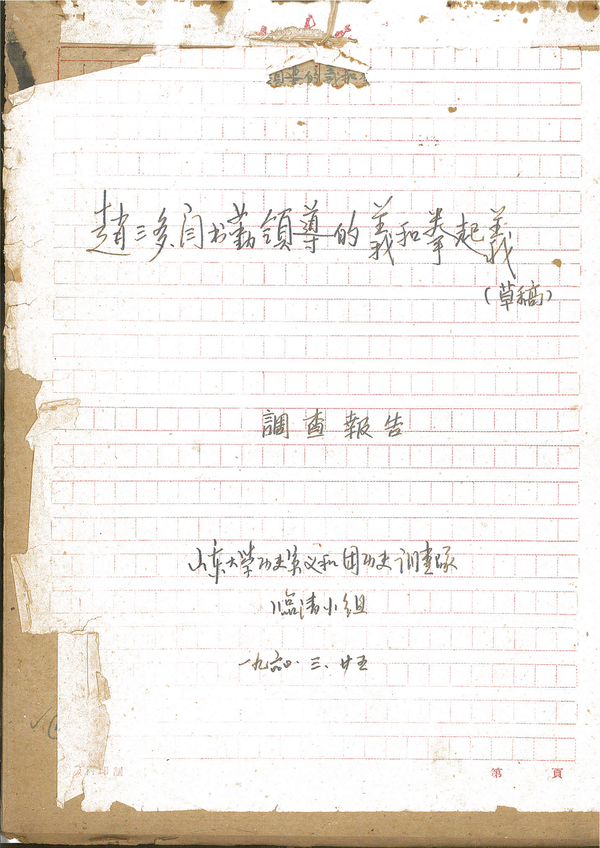 趙三多、闫书勤領導的義和拳起義
（草稿）
調查報告
山东大學历史系义和团历史调查队
临清小组
一九六〇.三.廿五
印製
第 頁